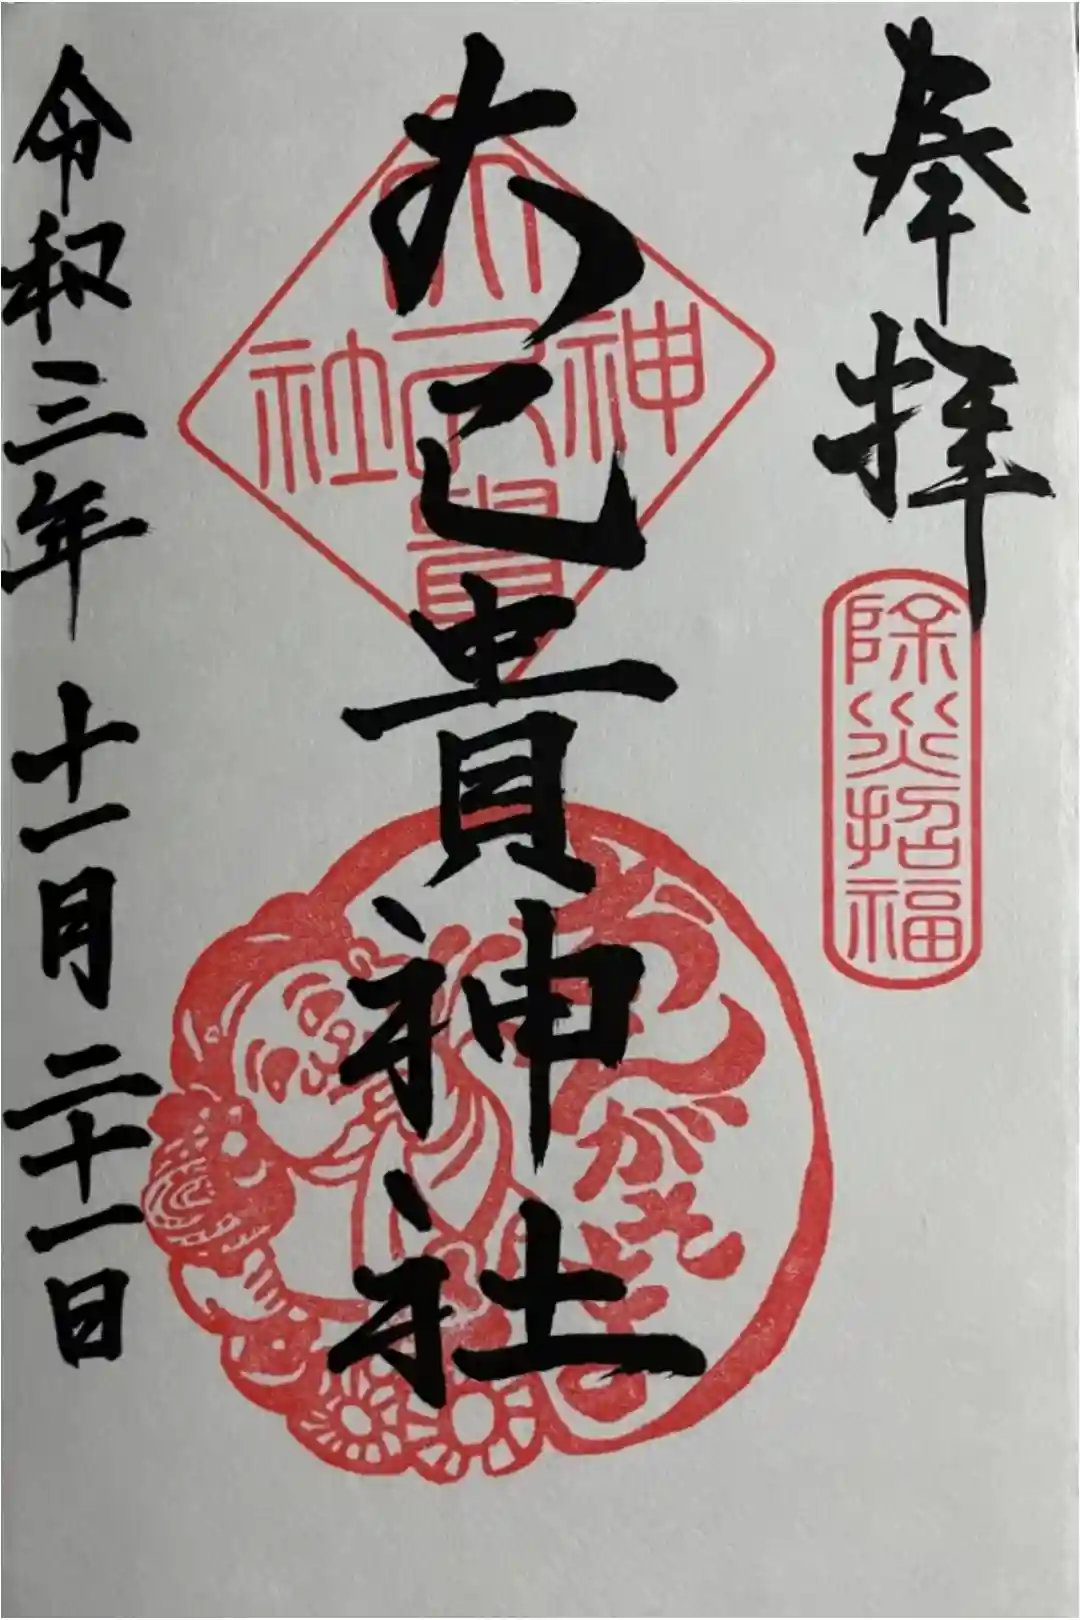 奉拝
除災招福
大己貴神社
大己貴
神社
令和三年 十一月 二十一日